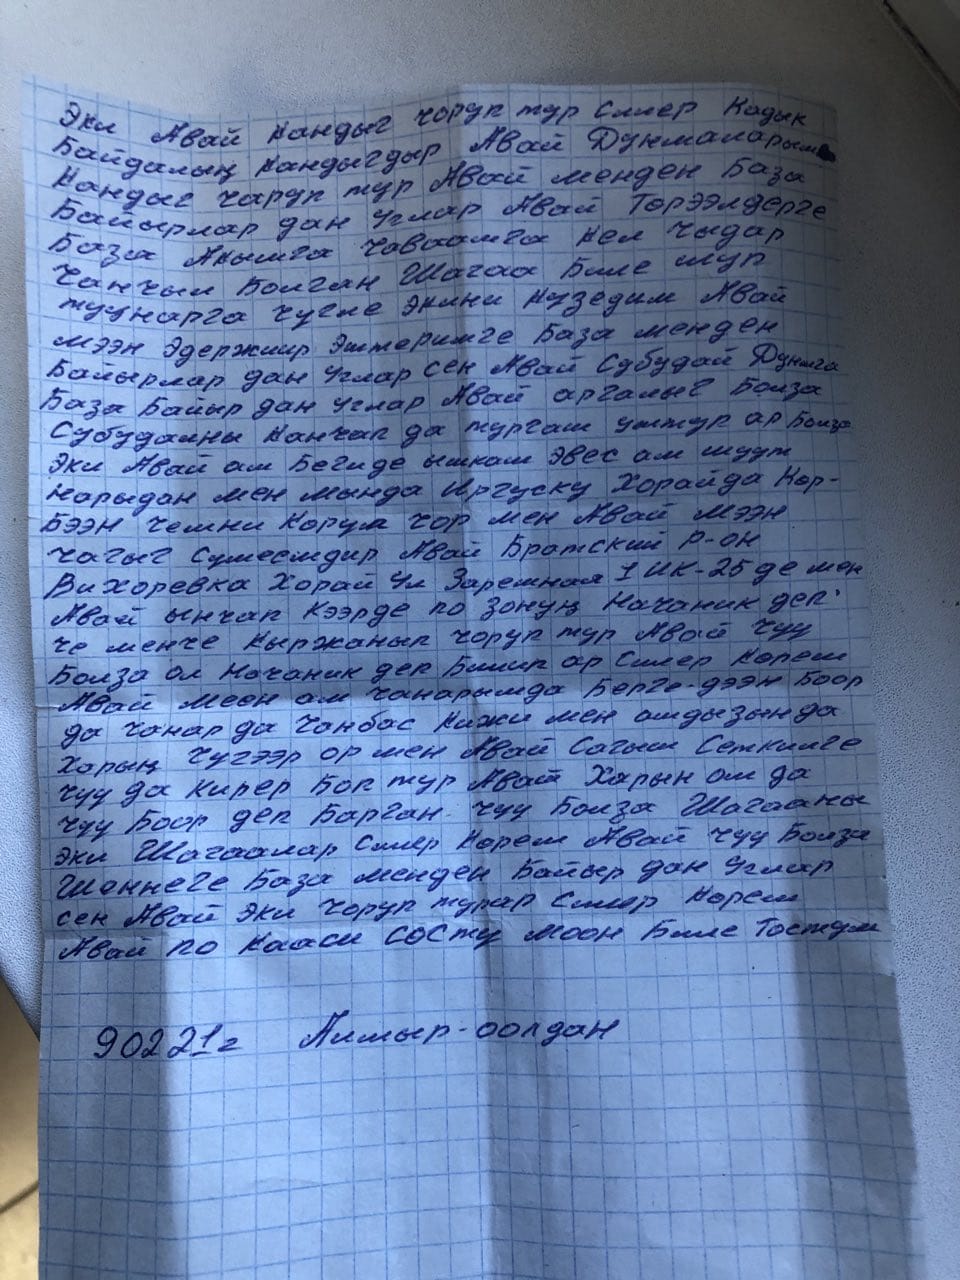 Эки Авай кандыг чоруп тур Силер Кадык
Байдалың кандыгдыр Авай Дуңмаларым
кандыг чаруп тур Авай менден База
Байырлар дан Углар Авай Торээлдерге
База Акымга Чаваамга кел Чыдар
Чанчыл Болган Шагаа Биле шуп
туңнарга чугле Экини кузедим Авай
мээн Эдержиир Эштеримге База менден
Байырлар дан Углар сен Авай Субудай Дуңмга
База Байыр дан углар Авай аргалыг Болза
Субудайны канчап да тургаш уштуп ар Болза
Эки Авай ам Бегиде ышкаш эвес ам шуут
Нарыдан мен мында Иргуску Хорайда Кор-
Бээн чемни Коруп чор мен Авай мээн
чагыг Сумесидир Авай Братский р-он
Вихоревка Хорай Ул Заречная 1 ИК-25 де мен
Авай ынчап Кээрде по зонуң Начаник деп
че менче Кыржанып чоруп тур Авай чуу
Болза ол Начаник деп Билип ар Силер Корем
Авай меен ам чанарымда Берге-дээн Боор
да Чанар да Чанбас кижи мен амдызында
Харың Чугээр ор мен Авай Сагыш Сеткилге
чуу да кирер Боп тур Авай Харын ам да
чуу Боор деп Барган чуу Болза Шагааны
эки Шагаалар Силер Корем Авай чуу Болза
Шоннеге База менден Байыр дан Углар
сен Авай Эки чоруп турар Силер Корем
Авай по Кааси состу моон Биле Тостум
90221г Алмыр-оолдан